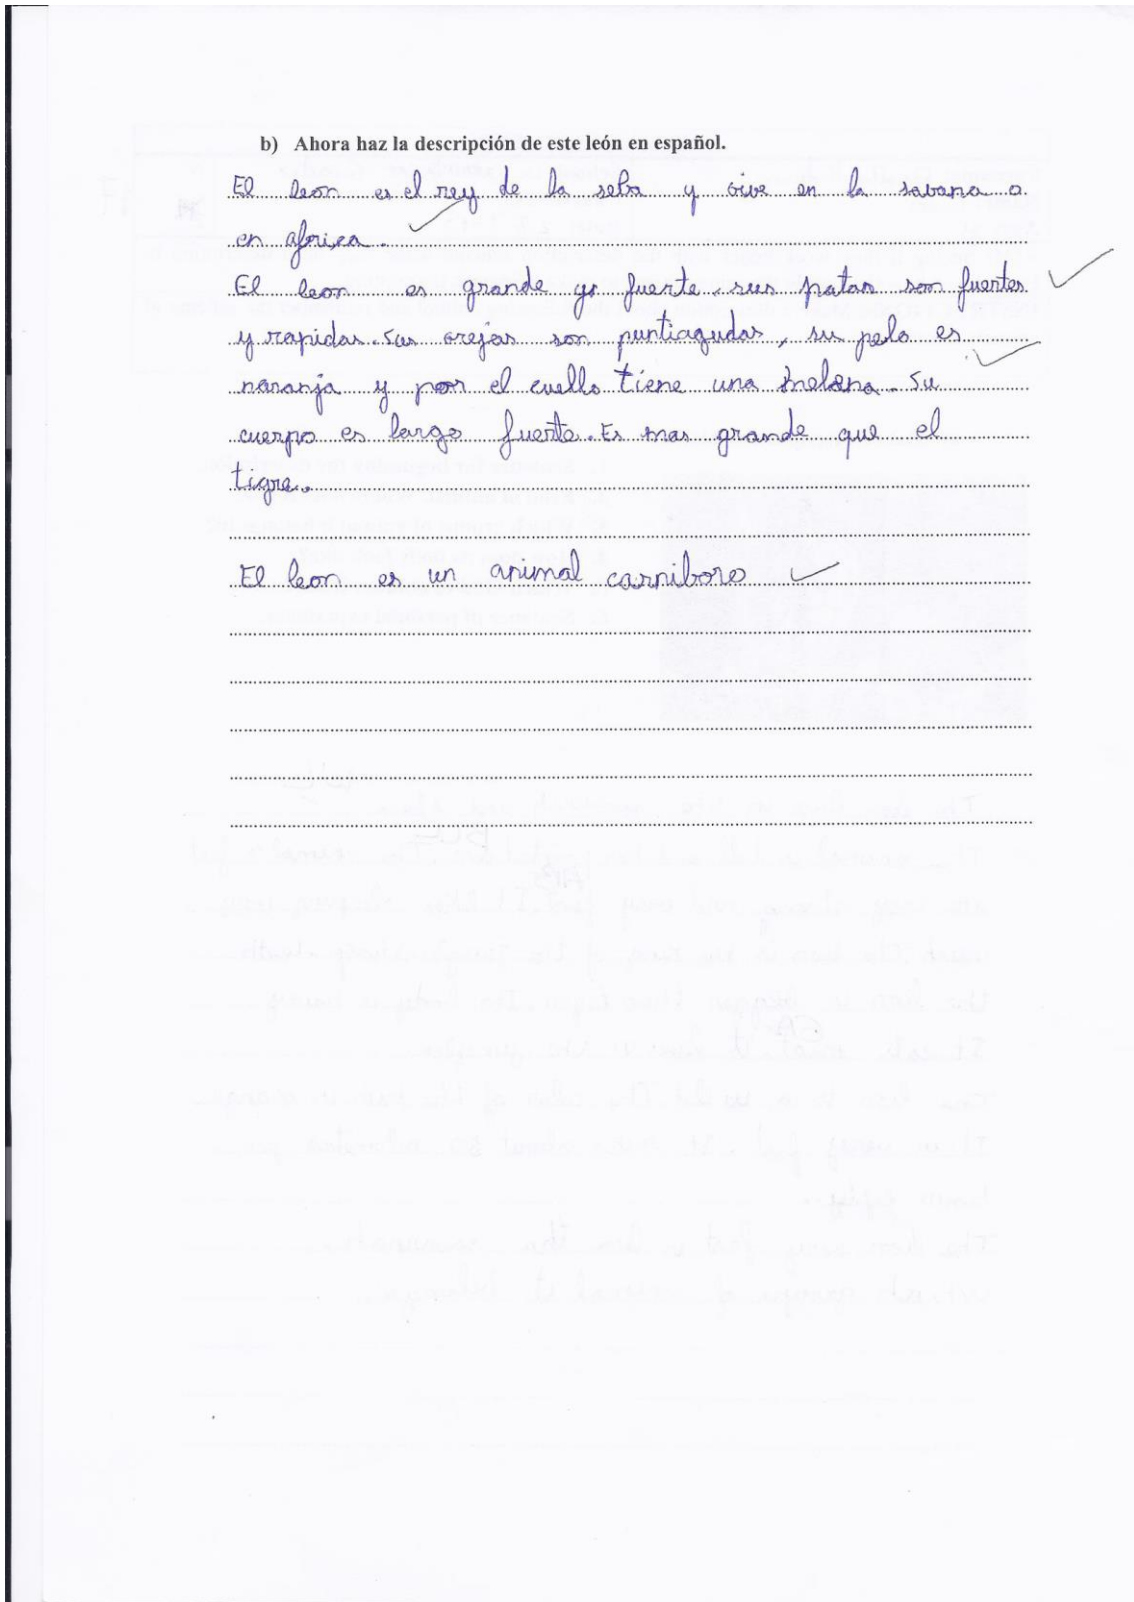 b) Ahora haz la descripción de este león en español.
El leon es el rey de la selva y vive en la savana o
en africa.
El leon es grande y fuerte, sus patas son fuertes
y rapidas. Sus orejas son puntiagudas, su pelo es
naranja y por el cuello tiene una melena. Su
cuerpo es largo fuerte. Es mas grande que el
tigre.
El leon es un animal carniboro